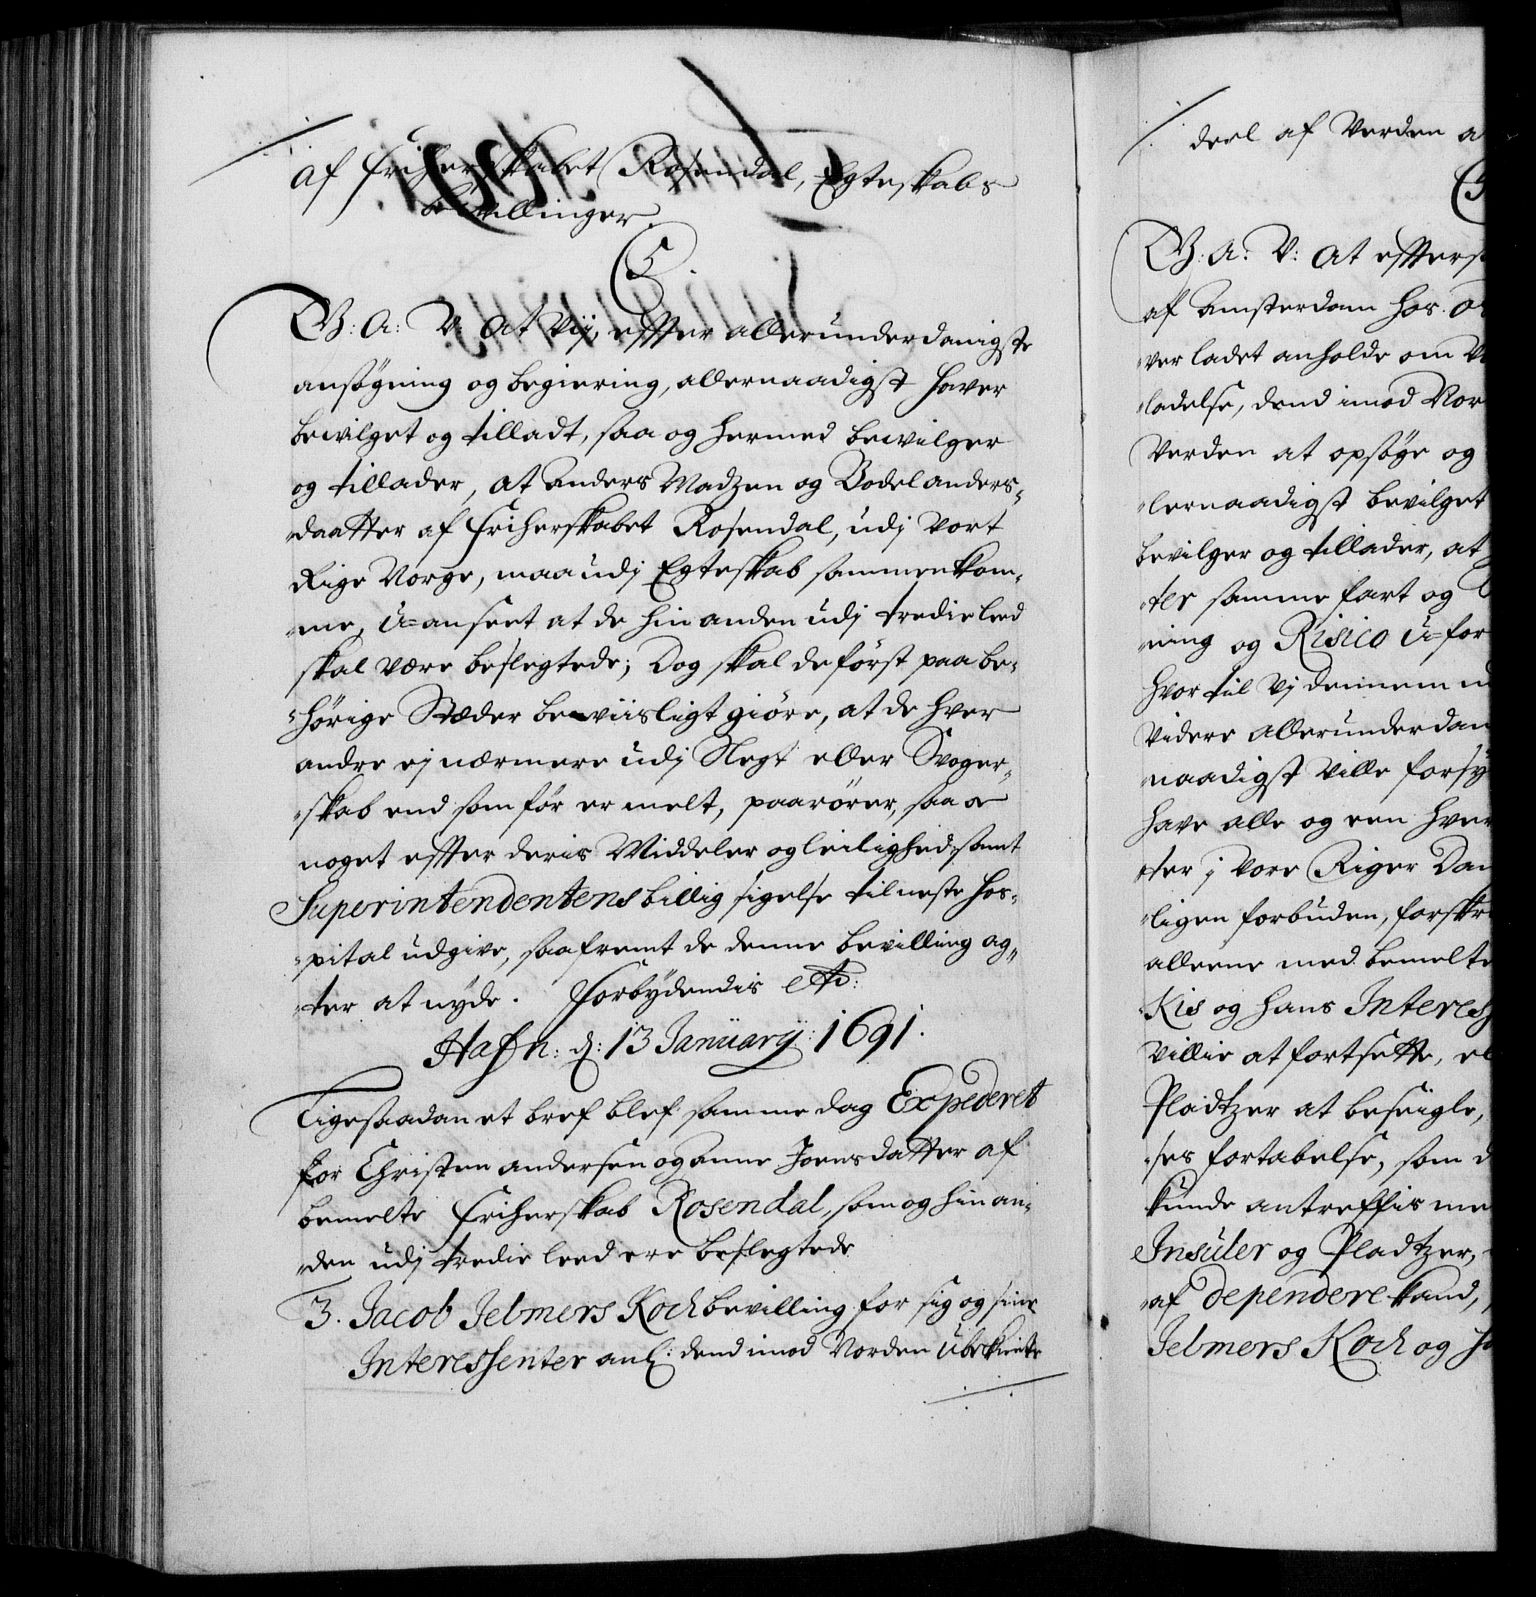 af friherskabet Rosendal, Egteskabs
bevillinger.
C5
G: A: V: At Vij, effter allerunderdanigste
ansøgning og begiering, allernaadigst haver
bewilget og tilladt, saa og hermed bewilger
og tillader, at Anders Madzen og Bodel Anders-
daatter af friherskabet Rosendal, udj vort
Rige Norge, maa udj Egteskab sammenkom-
me, U-anseet at de hinanden udj tredie leed
skal være beslegtede; Dog skal de først paa be-
hørige Stæder beviisligt giöre, at de hver
andre ej nærmere udj Slegt eller Svoger-
skab end som før er melt, paarører, saa og
noget effter deris Middeler og leilighed samt
Superintendentens billig sigelse til neste hos-
pital udgive, saafremt de denne bevilling ag-
ter at nyde. Forbydendis etc:
Hafn: d: 13 January: 1691.
Ligesaadan et bref blef samme dag Expederet
for Christen Andersen og Anne Joensdatter af
bemelte friherskab Rosendal, som og hinan-
den udj tredie leed ere beslegtede
3. Jacob Jelmers Koch bevilling for sig og sine
Interessenter anl: dend imod Norden Ubekiente
deel af Verden a
G: A: V: At effters
af Amsterdam hos o
ver ladet anholde om V
ladelse, dend imod Nor
Verden at opsøge og
lernaadigst bevilget
bevilger og tillader, at
ter samme fart og
ning og Risico U-for
hvor til Vj dennem
Videre allerunderdan
naadigst ville forsy
have alle og een hver
ter j vore Riger Dan
ligen forbuden, forskr
alleene med bemelte
Kis og hans Interess
villie at fortsette, el
Pladtzer at beseigle,
ses fortabelse, som d
kunde antreffis me
Insuler og Pladtzer,
af dependere kand,
Jelmers Koch og h